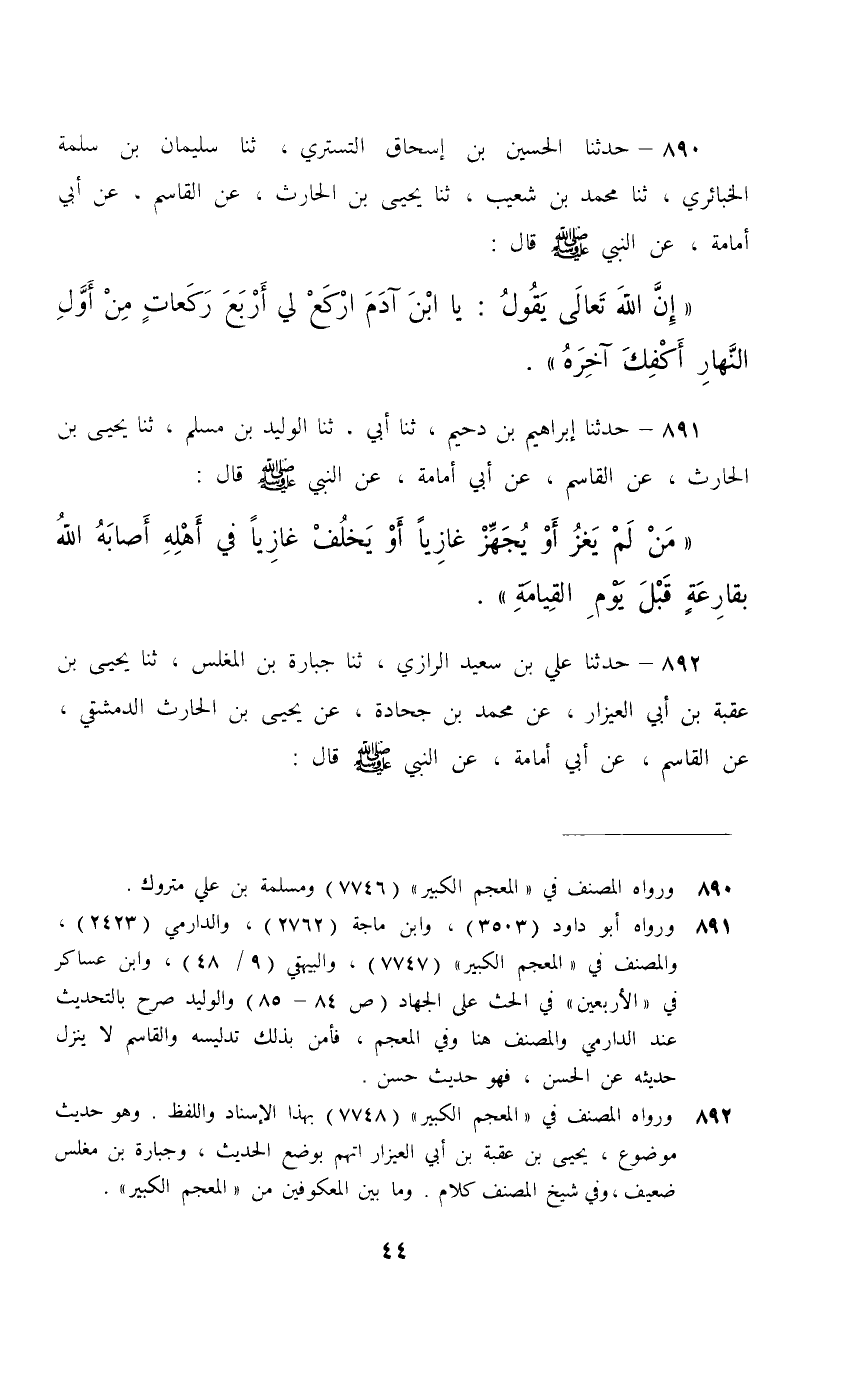 ٨٩٠ – حدثنا الحسين بن إسحاق التستري ، ثنا سليمان بن سلمة
الخبائري ، ثنا محمد بن شعيب ، ثنا يحيى بن الحارث ، عن القاسم . عن أبي
أمامة ، عن النبي ﷺ قال :
« إِنَّ اللهَ تَعالَى يَقُولُ : يا ابْنَ آدَمَ ارْكَعْ لي أَرْبَعَ رَكَعاتٍ مِنْ أَوَّلِ
النَّهارِ أَكْفِكَ آخِرَهُ » .
٨٩١ – حدثنا إبراهيم بن دحيم ، ثنا أبي . ثنا الوليد بن مسلم ، ثنا يحيى بن
الحارث ، عن القاسم ، عن أبي أمامة ، عن النبي ﷺ قال :
« مَنْ لَمْ يَغزُ أَوْ يُجَهِّزْ غازِياً أَوْ يَخلُفْ غازِياً في أَهْلِهِ أَصابَهُ اللهُ
بقارِعَةٍ قَبْلَ يَوْمِ القِيامَةِ » .
٨٩٢ – حدثنا علي بن سعيد الرازي ، ثنا جبارة بن المغلس ، ثنا يحيى بن
عقبة بن أبي العيزار ، عن محمد بن جحادة ، عن يحيى بن الحارث الدمشقي ،
عن القاسم ، عن أبي أمامة ، عن النبي ﷺ قال :
٨٩٠ ورواه المصنف في « المعجم الكبير » (٧٧٤٦) ومسلمة بن علي متروك .
٨٩١ ورواه أبو داود (٣٥٠٣) ، وابن ماجة (٢٧٦٢) ، والدارمي (٢٤٢٣) ،
والمصنف في « المعجم الكبير » (٧٧٤٧) ، والبيهقي (٩ / ٤٨) ، وابن عساكر
في « الأربعين » في الحث على الجهاد (ص ٨٤ – ٨٥) والوليد صرح بالتحديث
عند الدارمي والمصنف هنا وفي المعجم ، فأمن بذلك تدليسه والقاسم لا ينزل
حديثه عن الحسن ، فهو حديث حسن .
٨٩٢ ورواه المصنف في « المعجم الكبير » (٧٧٤٨) بهذا الإسناد واللفظ . وهو حديث
موضوع ، يحيى بن عقبة بن أبي العيزار اتهم بوضع الحديث ، وجبارة بن مغلس
ضعيف ، وفي شيخ المصنف كلام . وما بين المعكوفين من « المعجم الكبير » .
٤٤